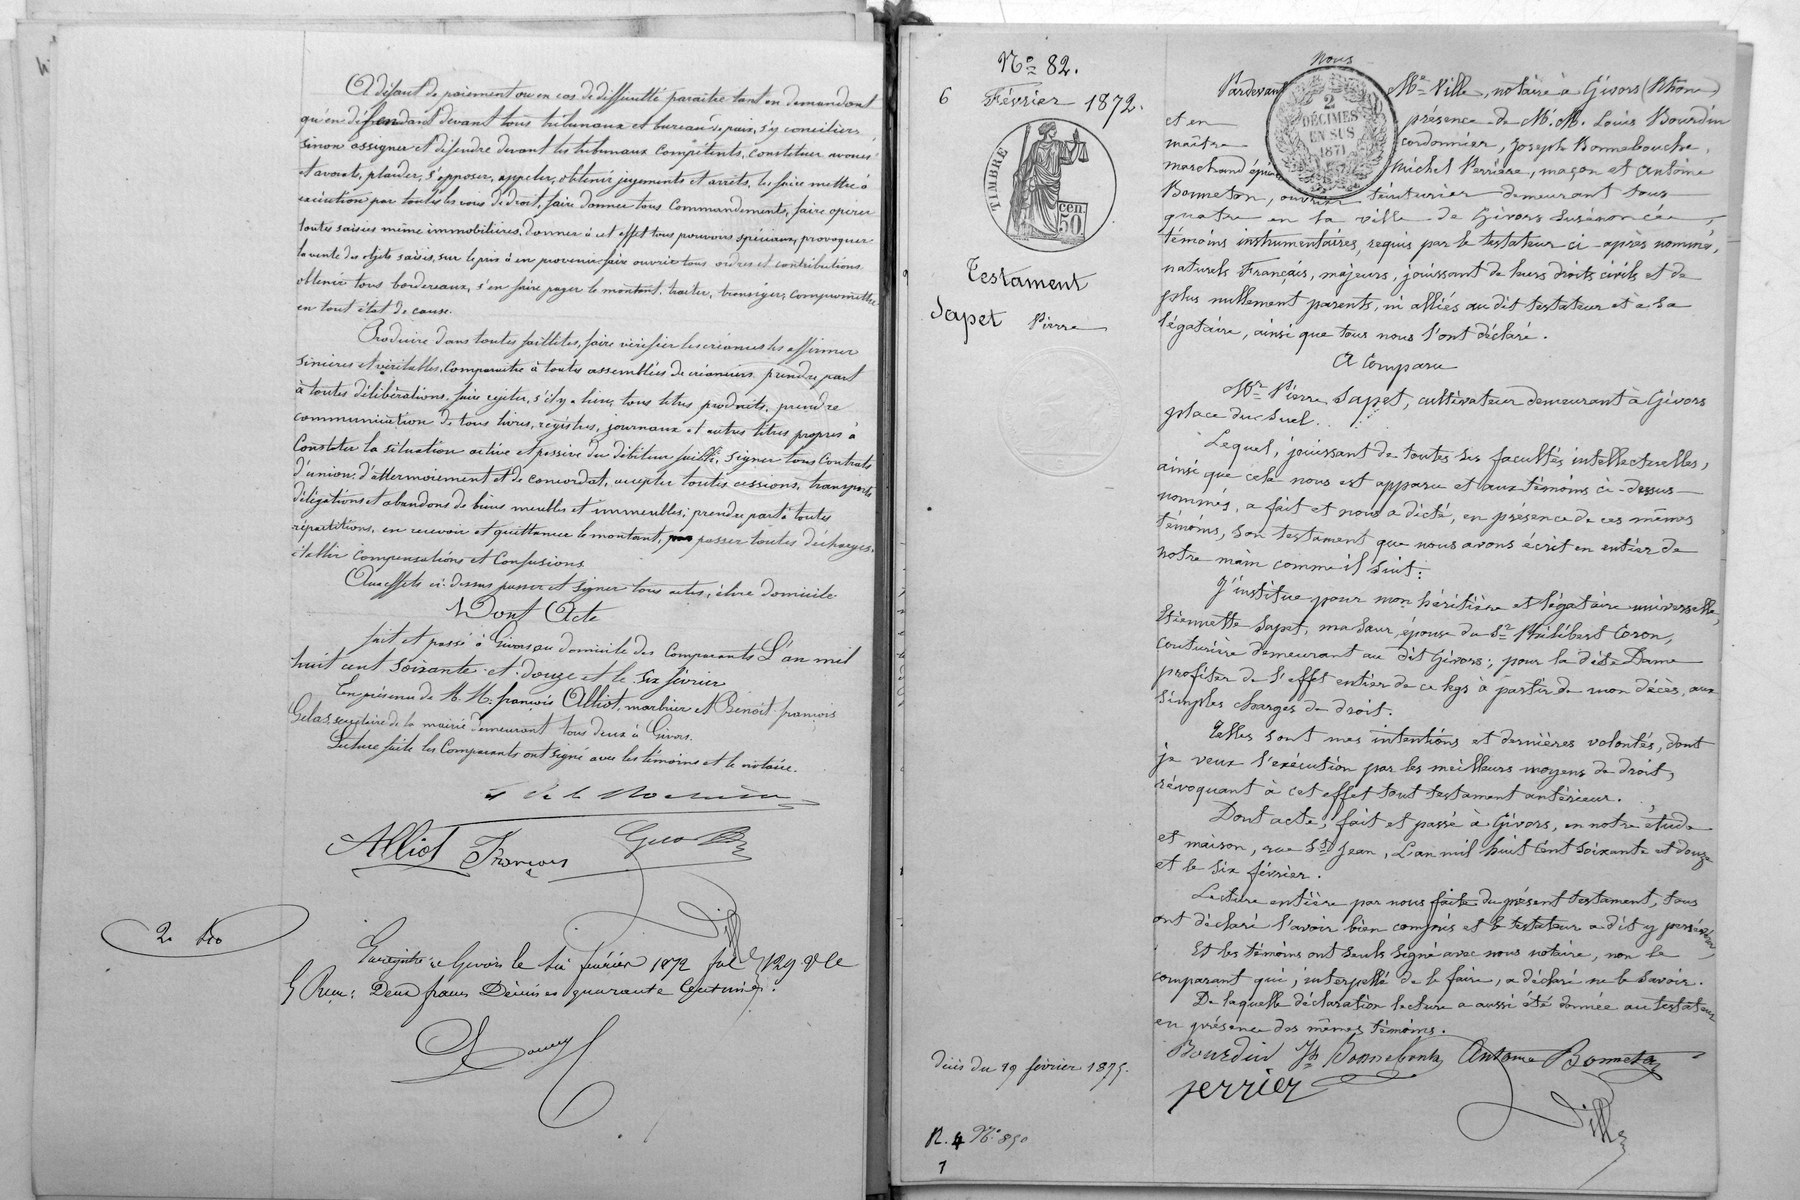 A défaut de paiement ou en cas de difficulté paraître tant en demandant
qu'en défendant devant tous tribunaux et bureau de paix, s'y concilier
sinon assigner et défendre devant les tribunaux compétents, constituer avoués
et avocats, plaider, s'opposer, appeler, obtenir jugements et arrêts, les faire mettre à
exécution par toutes les voies de droit, faire donner tous commandements, faire opérer
toutes saisies même immobilières, donner à cet effet tous pouvoirs spéciaux, provoquer
la vente des objets saisis, sur le prix à en provenir faire ouvrir tous ordres et contributions
obtenir tous bordereaux, s'en faire payer le montant, traiter, transiger, compromettre
en tout état de cause.
Produire dans toutes faillites, faire vérifier les créances les affirmer
sincères et véritables, comparaître à toutes assemblées de créanciers prendre part
à toutes délibérations, faire rejeter, s'il y a lieu, tous titres produits, prendre
communication de tous livres, régistres, journaux et autres titres propres à
Constater la situation active et passive du débiteur failli, signer tous Contrats
d'union d'attermoiement et de concordat, accepter toutes cessions, transports
délégations et abandons de biens meubles et immeubles; prendre part à toutes
répartitions, en recevoir et quittancer le montant, passer toutes décharges,
établir compensations et confusions
Aux effets ci-dessus passer et signer tous actes, élire domicile
Dont Acte
fait et passé à Givors au domicile des Comparants L'an mil
huit cent soixante et douze et le six février
En présence de M.M. françois Alliot, marbrier et Benoit françois
Gelas, secrétaire de la mairie demeurant tous deux à Givors.
Lecture faite les Comparants ont signé avec les témoins et le notaire.
Alliot François
Ville
Enregistré à Givors le six février 1872 fol 129 V
Reçu: Deux francs Décimes quarante Centimes.
2
No 82.
6 Février 1872.
TIMBRE
50 cen.
Testament
Sapet Pierre
nous
2
DÉCIMES
EN SUS
1871
Pardevant Me Ville, notaire à Givors (Rhône)
et en présence de M.M. Louis Bourdin
maître cordonnier, Joseph Bonnebouche,
marchand épicier Michel Perrière, maçon et antoine
Bonneton, ouvrier teinturier demeurant tous
quatre en la ville de Givors susénoncée,
témoins instrumentaires, requis par le testateur ci-après nommé,
naturels Français, majeurs, jouissant de leurs droits civils et de
plus nullement parents, ni alliés au dit testateur et à sa
légataire, ainsi que tous nous l'ont déclaré.
A Comparu
Mr Pierre Sapet, cultivateur demeurant à Givors
place du Suel.
Lequel, jouissant de toutes ses facultés intellectuelles,
ainsi que cela nous est apparu et aux témoins ci-dessus
nommés, a fait et nous a dicté, en présence de ces mêmes
témoins, son testament que nous avons écrit en entier de
notre main comme il suit:
J'institue pour mon héritière et légataire universelle,
Etiennette Sapet, ma sœur, épouse du Sr Philibert Coron,
couturière demeurant au dit Givors; pour la dite Dame
profiter de l'effet entier de ce legs à partir de mon décès, aux
simples charges de droit.
Telles sont mes intentions et dernières volontés, dont
je veux l'exécution par les meilleurs moyens de droit,
révoquant à cet effet tout testament antérieur.
Dont acte, fait et passé à Givors, en notre étude
et maison, rue St Jean, L'an mil huit Cent soixante et douze
et le six février.
Lecture entière par nous faite du présent testament, tous
ont déclaré l'avoir bien compris et le testateur a dit y persévérer,
Et les témoins ont seuls signé avec nous notaire, non le
comparant qui, interpellé de le faire, a déclaré ne le savoir.
De laquelle déclaration lecture a aussi été donnée au testateur
en présence des mêmes témoins.
Bourdin Jh Bonnebouche Antoine Bonneton
perrier
Ville
décès du 19 février 1875.
R. 4 No 850
1